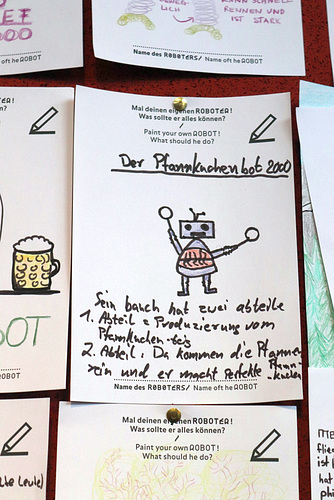 2000
LICH
KANN SCHNELL
RENNEN UND
IST STARK
Name des ROBOTERS/ Name oft he ROBOT
oft he ROBOT
Mal deinen eigenen ROBOTER!
Was sollte er alles können?
/
Paint your own ROBOT!
What should he do?
Der Pfannkuchenbot 2000
Sein bauch hat zwei abteile
1. Abteil = Produzierung vom
Pfannkuchen-teig
2. Abteil: Da kommen die Pfannen
rein und er macht perfekte Pfann-
kuchen
Name des ROBOTERS/ Name oft he ROBOT
OT
ROBOT
Mal deinen eigenen ROBOTER!
Was sollte er alles können?
/
Paint your own ROBOT!
What should he do?